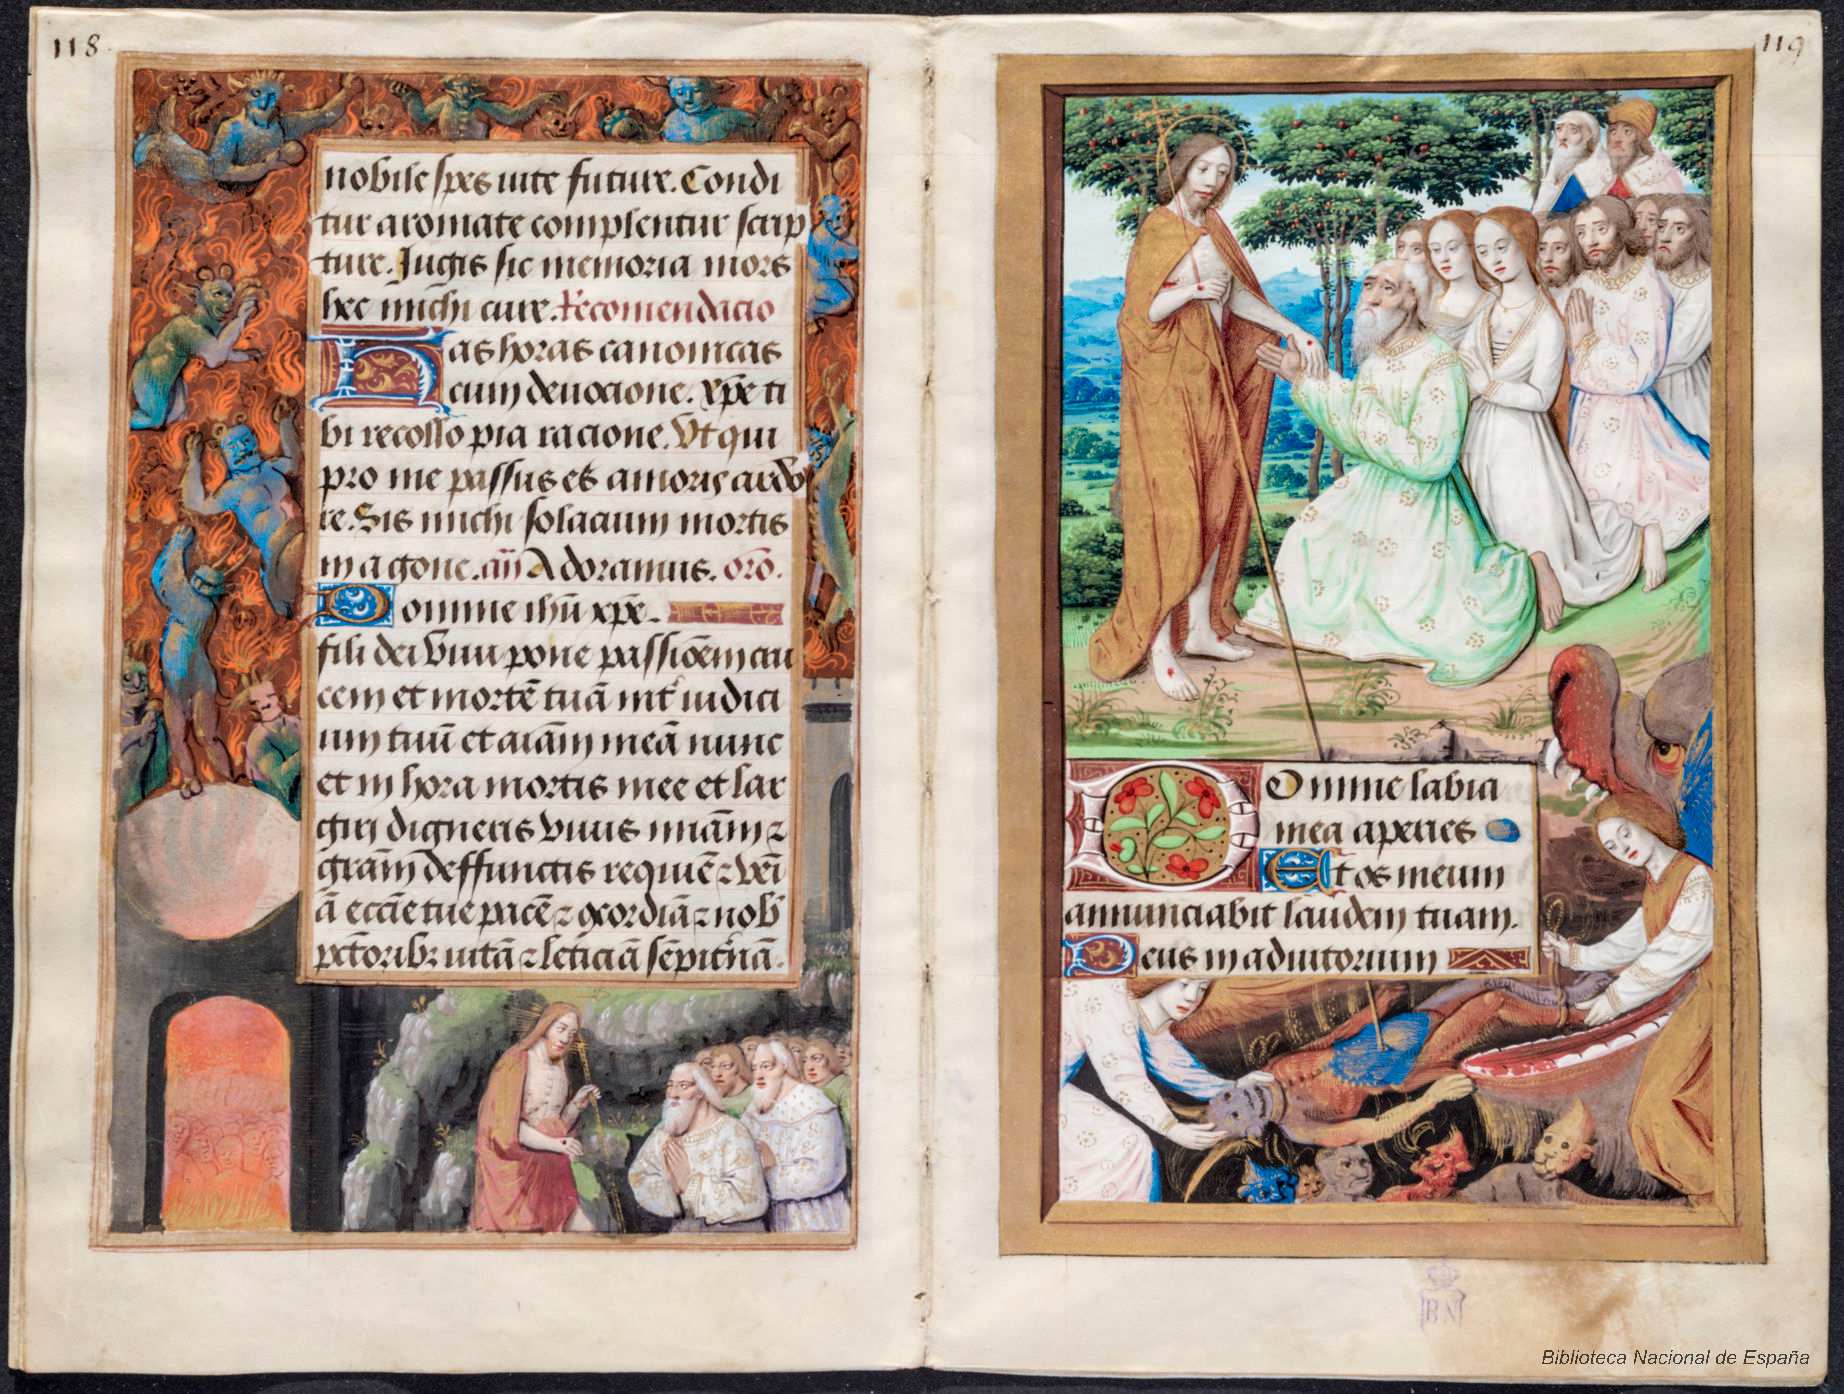 118
nobile spes uite future. Condi
tur aromate complentur scrip
ture. Jugis sic memoria mors
hec michi cure. Recomendacio
Has horas canonicas
cum deuocione. xpē ti
bi recolo pia racione. Vt qui
pro me passus es amoris ardo
re. Sis michi solacium mortis
in agone. añ Adoramus. oro.
Domine ihū xpē
fili dei viui pone passiōem cru
cem et mortē tuā int iudici
um tuū et aīam meā nunc
et in hora mortis mee et lar
giri digneris viuis miām ⁊
grām deffunctis requiē ⁊ veī
ā eccē tue pacē ⁊ ꝯcordiā ⁊ nob
pctōribꝫ uitā ⁊ leticiā sēpitnā.
119
Domine labia
mea aperies
Et os meum
annunciabit laudem tuam.
Deus in adiutorium
BN
Biblioteca Nacional de España